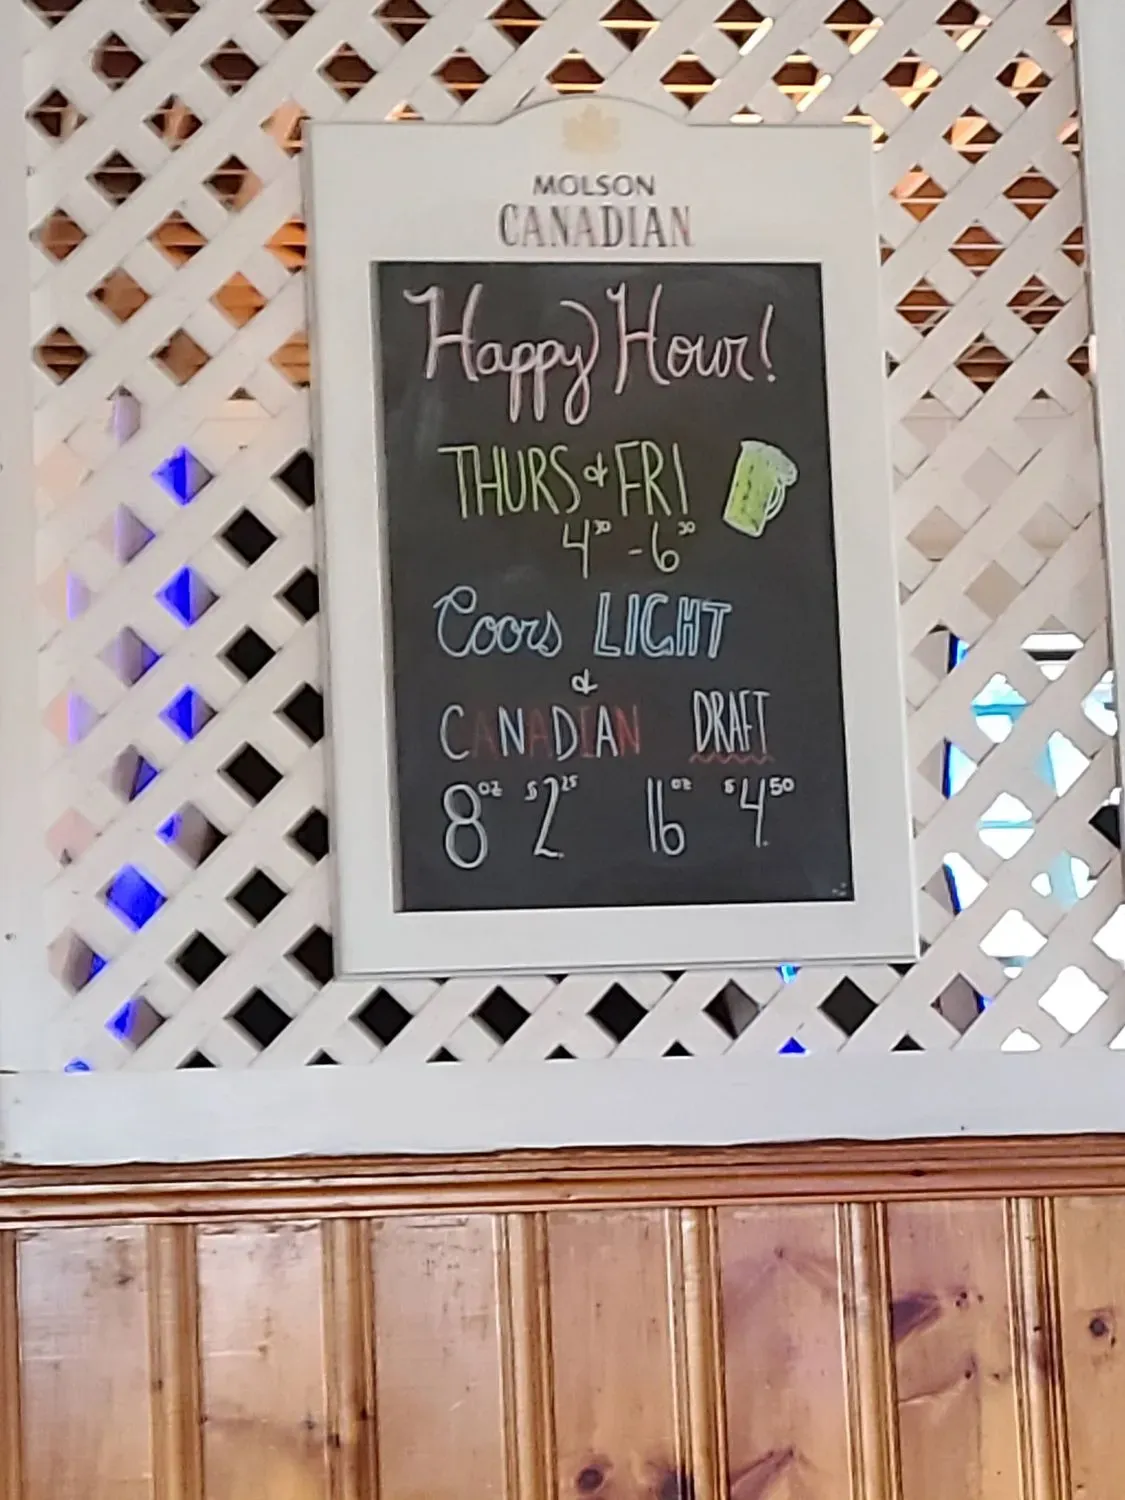 MOLSON
CANADIAN
Happy Hour!
THURS & FRI
4³⁰ - 6³⁰
Coors LIGHT
&
CANADIAN DRAFT
8oz $2.25 16oz $4.50